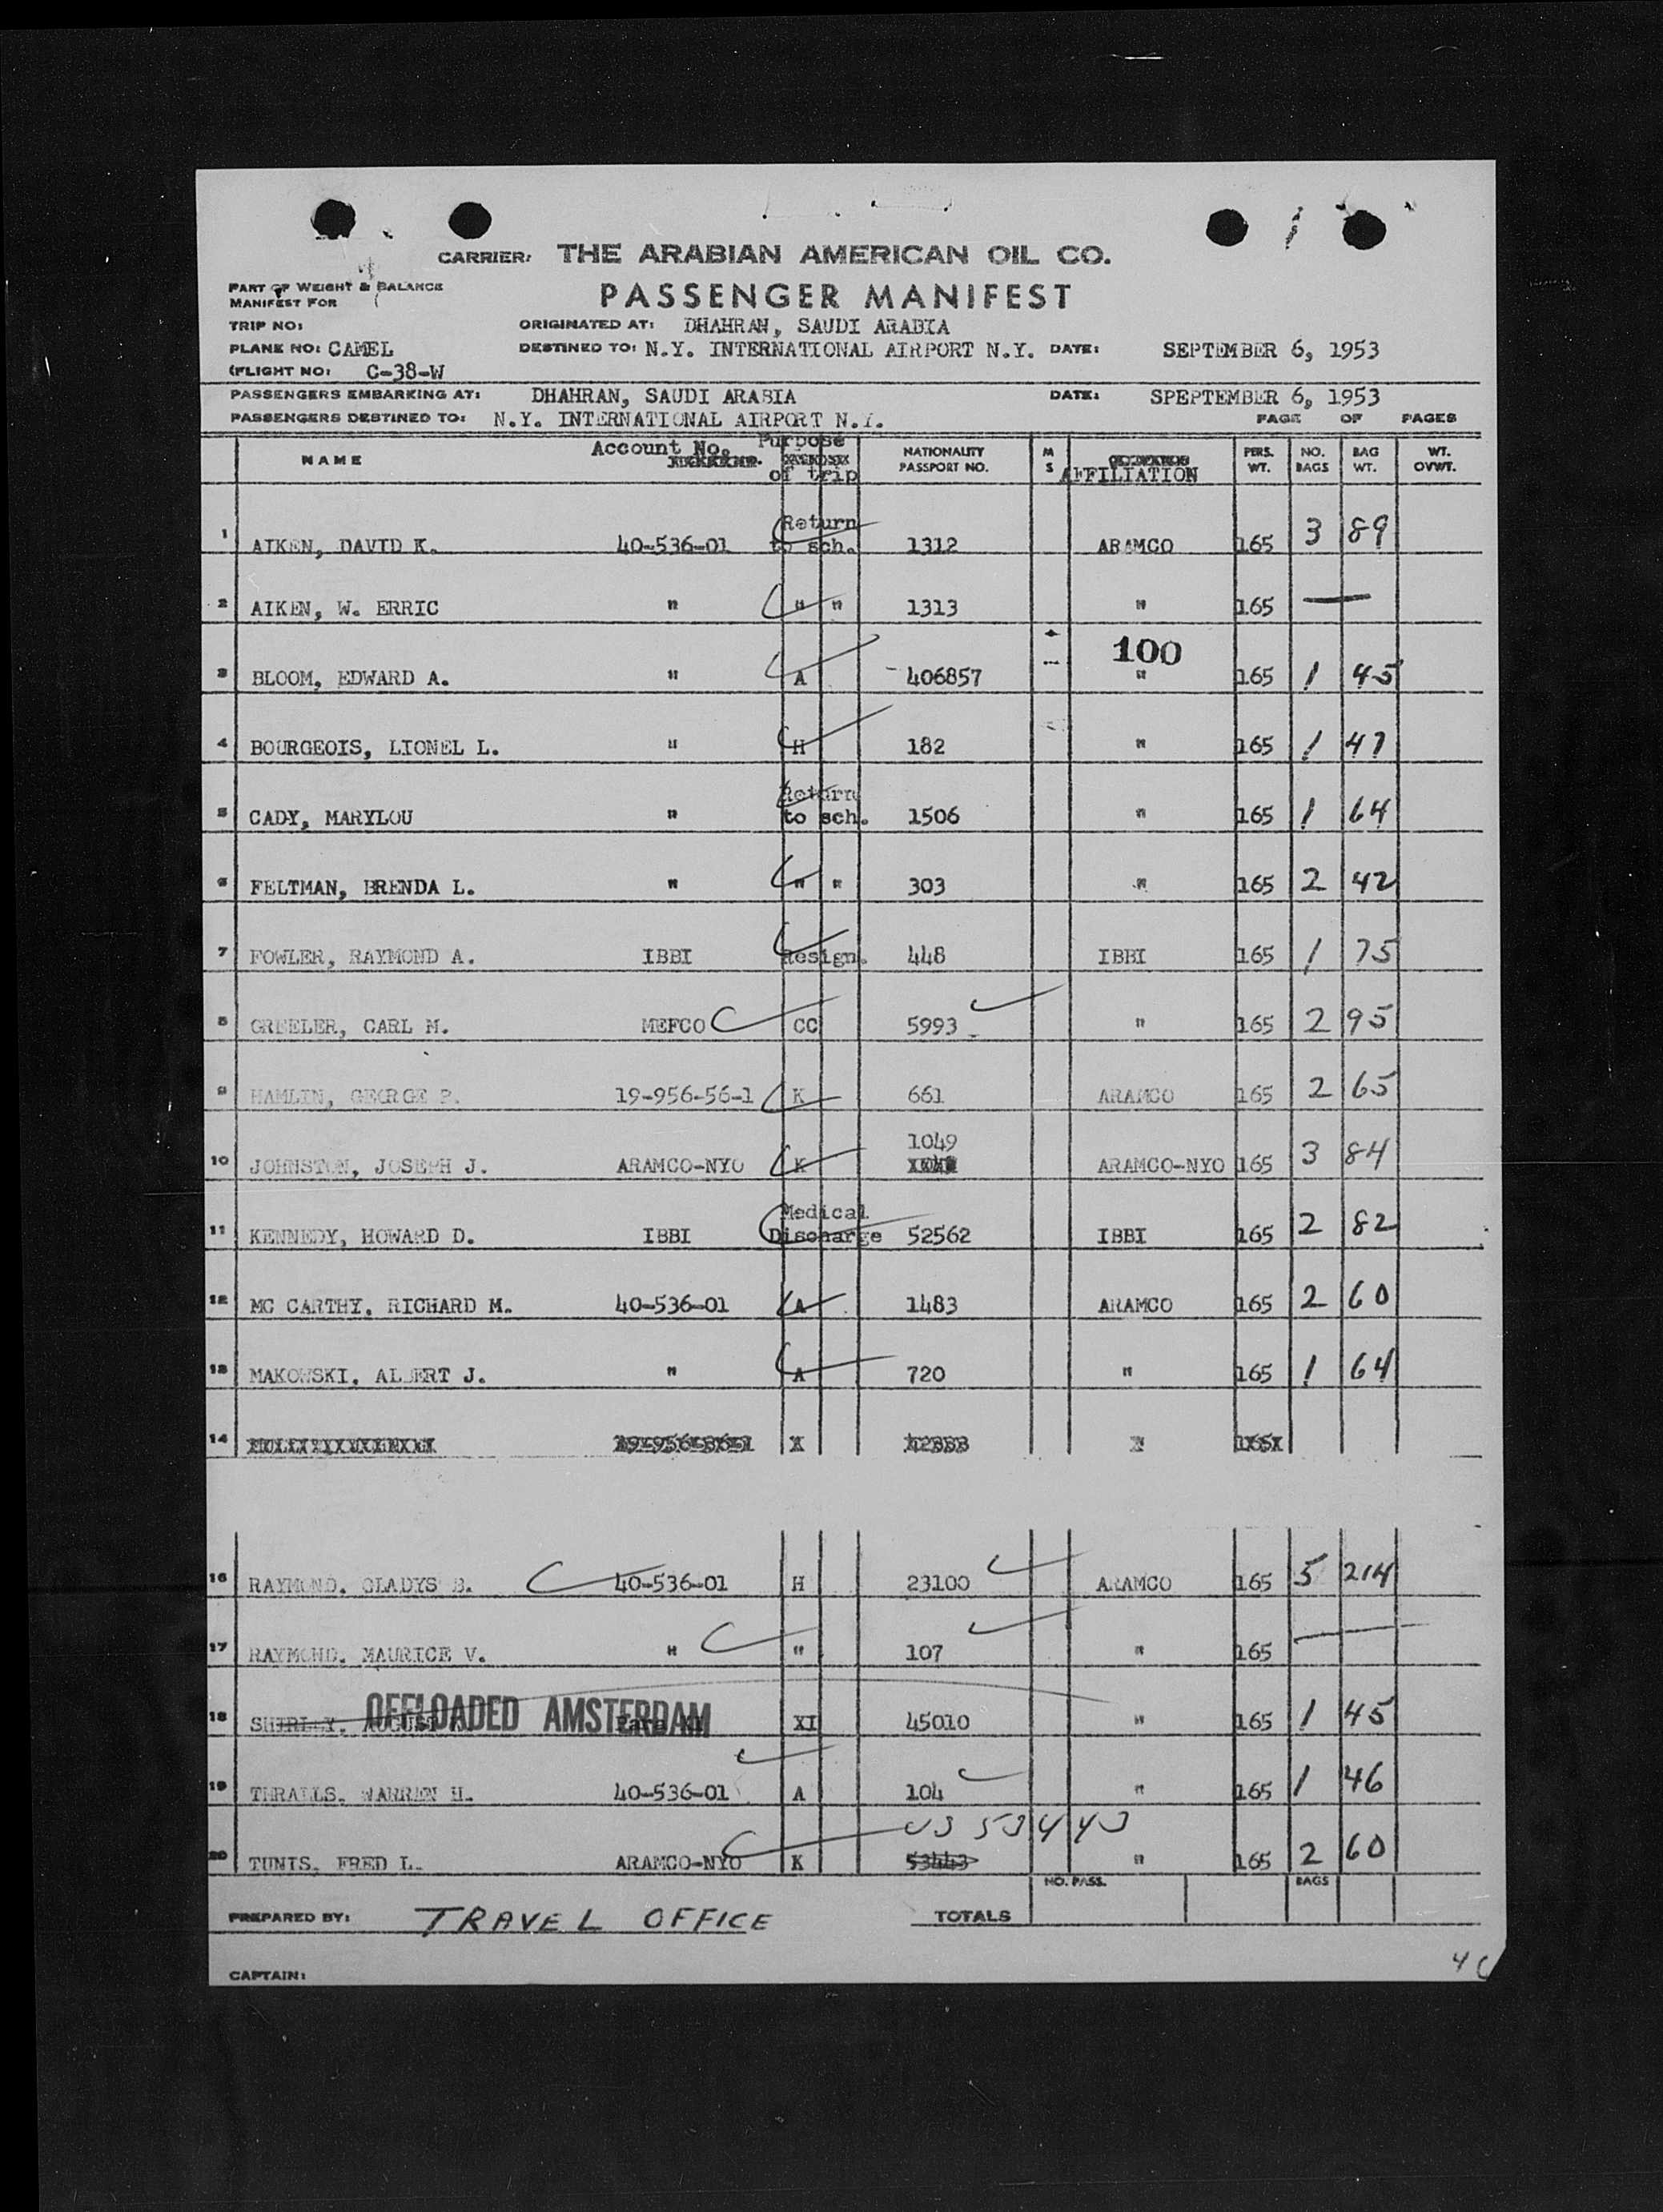 CARRIER: THE ARABIAN AMERICAN OIL CO.
PART OF WEIGHT & BALANCE
MANIFEST FOR
PASSENGER MANIFEST
TRIP NO: ORIGINATED AT: DHAHRAN, SAUDI ARABIA
PLANE NO: CAMEL DESTINED TO: N.Y. INTERNATIONAL AIRPORT N.Y. DATE: SEPTEMBER 6, 1953
(FLIGHT NO: C-38-W
PASSENGERS EMBARKING AT: DHAHRAN, SAUDI ARABIA DATE: SPEPTEMBER 6, 1953
PASSENGERS DESTINED TO: N.Y. INTERNATIONAL AIRPORT N.Y. PAGE OF PAGES
NAME Account No. Purpose of trip NATIONALITY PASSPORT NO. M S AFFILIATION PERS. WT. NO. BAGS BAG WT. WT. OVWT.
1 AIKEN, DAVID K. 40-536-01 Return to sch. 1312 ARAMCO 165 3 89
2 AIKEN, W. ERRIC " " " 1313 " 165 —
100
3 BLOOM, EDWARD A. " A 406857 " 165 1 45
4 BOURGEOIS, LIONEL L. " H 182 " 165 1 47
5 CADY, MARYLOU " Return to sch. 1506 " 165 1 64
6 FELTMAN, BRENDA L. " " " 303 " 165 2 42
7 FOWLER, RAYMOND A. IBBI Resign. 448 IBBI 165 1 75
8 GREELER, CARL M. MEFCO CC 5993 " 165 2 95
9 HAMLIN, GEORGE P. 19-956-56-1 K 661 ARAMCO 165 2 65
10 JOHNSTON, JOSEPH J. ARAMCO-NYO K 1049 ARAMCO-NYO 165 3 84
11 KENNEDY, HOWARD D. IBBI Medical Discharge 52562 IBBI 165 2 82
12 MC CARTHY, RICHARD M. 40-536-01 A 1483 ARAMCO 165 2 60
13 MAKOWSKI, ALBERT J. " A 720 " 165 1 64
14
16 RAYMOND, GLADYS B. 40-536-01 H 23100 ARAMCO 165 5 214
17 RAYMOND, MAURICE V. " " 107 " 165 —
OFFLOADED AMSTERDAM
18 SHIRLEY, AUGUST XI 45010 " 165 1 45
19 THRALLS, WARREN H. 40-536-01 A 104 " 165 1 46
20 TUNIS, FRED L. ARAMCO-NYO K 53443 " 165 2 60
NO. PASS. BAGS
PREPARED BY: TRAVEL OFFICE TOTALS
CAPTAIN: